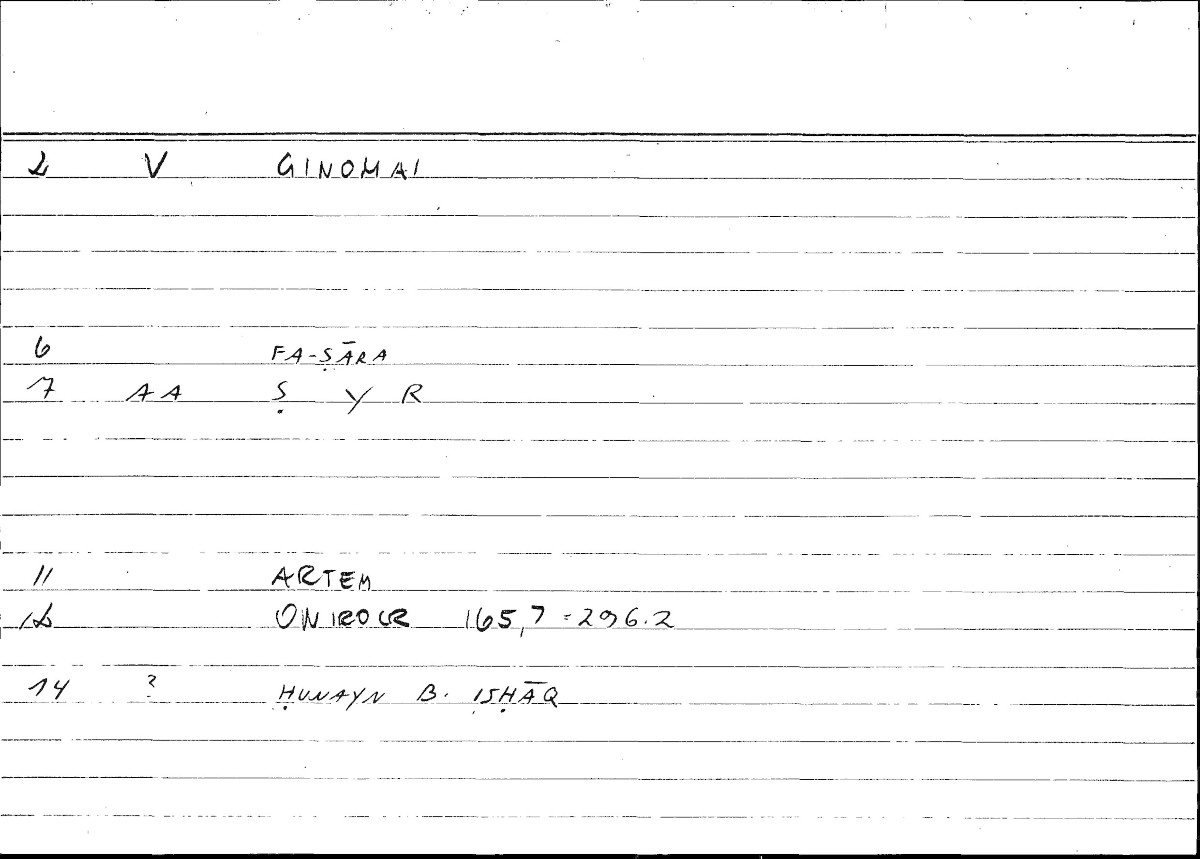 2 V GINOMAI
6 FA-ṢĀRA
7 AA Ṣ Y R
11 ARTEM
12 ONIROCR 165,7=296.2
14 ? ḤUNAYN B. ISḤĀQ